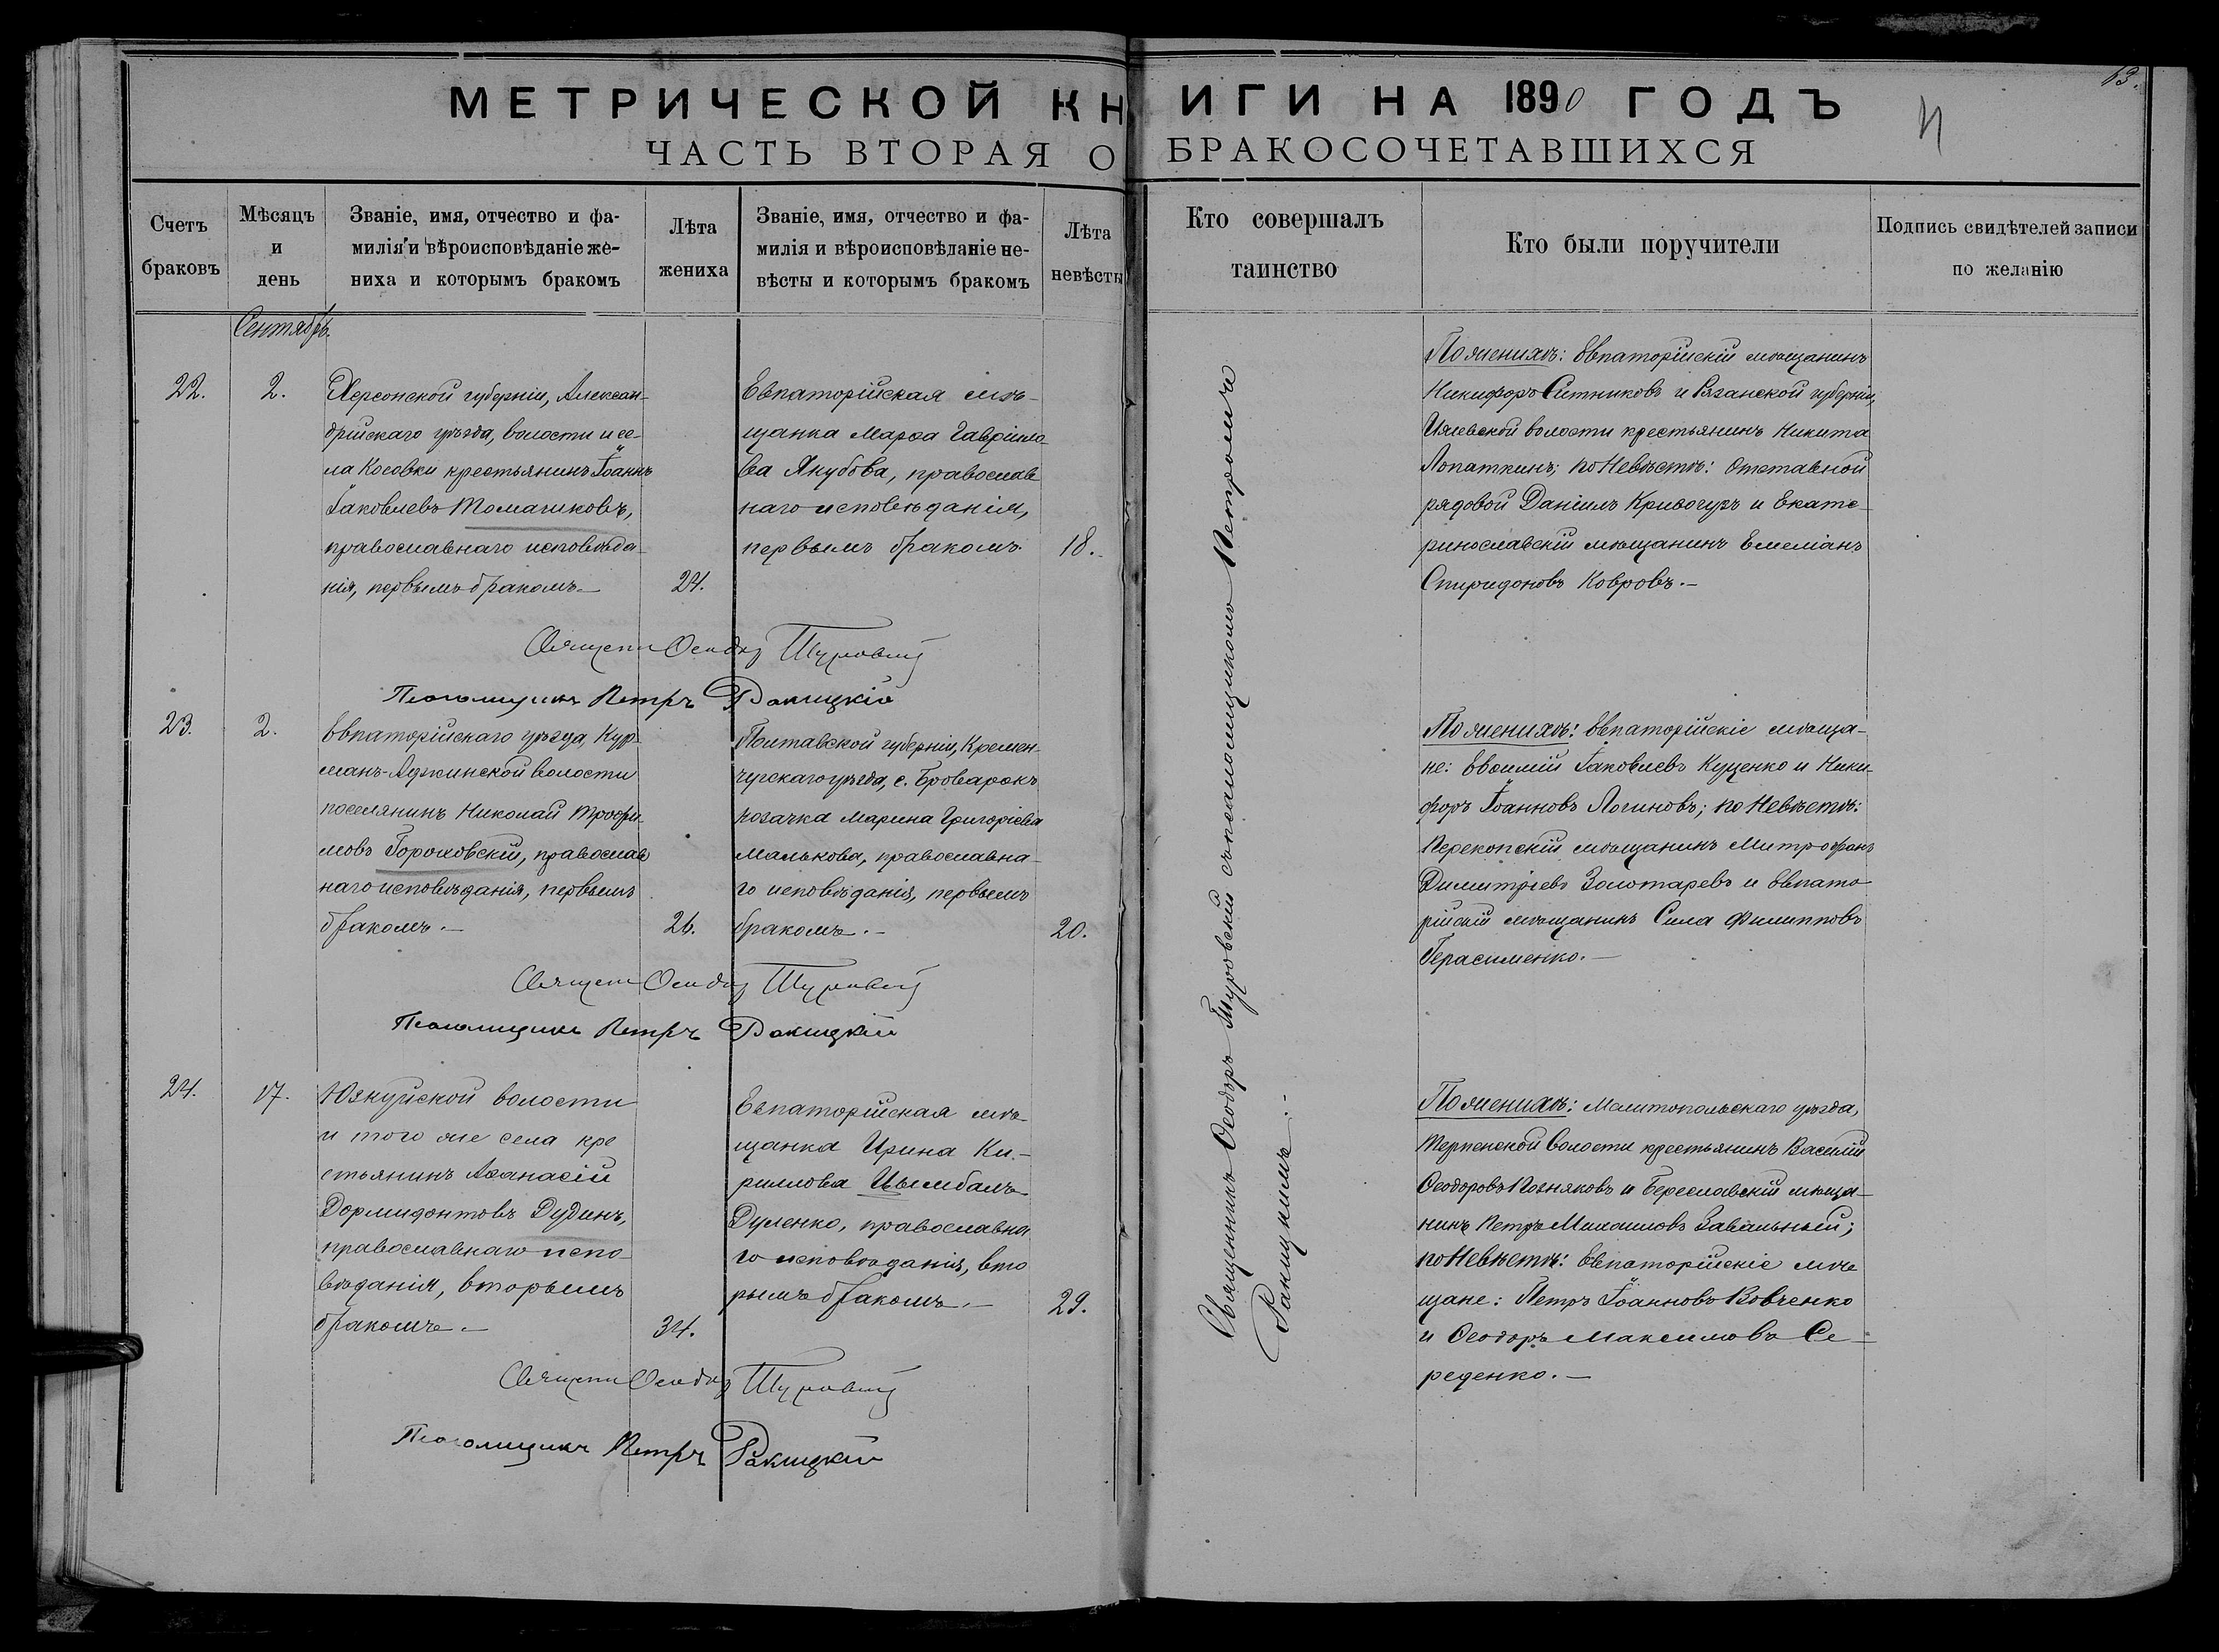 МЕТРИЧЕСКОЙ КНИГИ НА 1890 ГОДЪ
63.
ЧАСТЬ ВТОРАЯ О БРАКОСОЧЕТАВШИХСЯ
Счетъ
браковъ
Мѣсяцъ
и
день
Званіе, имя, отчество и фа-
милія и вѣроисповѣданіе же-
ниха и которымъ бракомъ
Лѣта
жениха
Званіе, имя, отчество и фа-
милія и вѣроисповѣданіе не-
вѣсты и которымъ бракомъ
Лѣта
невѣсты
Кто совершалъ
таинство
Кто были поручители
Подпись свидѣтелей записи
по желанію
Сентябрь.
22.
2.
Херсонской губерніи, Алексан-
дрійскаго уѣзда, волости и се-
ла Косовки крестьянинъ Іоаннъ
Іаковлевъ Томашковъ,
православнаго исповѣда-
нія, первымъ бракомъ.
24.
Евпаторійская мѣ-
щанка Марѳа Гавріило-
ва Якубова, православ
наго исповѣданія,
первымъ бракомъ
18.
По женихѣ: Евпаторійскій мѣщанинъ
Никифоръ Ситниковъ и Рязанской губерніи,
волости крестьянинъ Никита
Лопаткинъ; по Невѣстѣ: Отставной
рядовой Даніилъ и Екате-
ринославскій мѣщанинъ Емеліанъ
Спиридоновъ Ковровъ.
Священ Ѳеодор Туровскій
Псаломщикъ Петръ Ракицкій
23.
2.
Евпаторійскаго уѣзда, Кур-
манъ-Аджинской волости
поселянинъ Николай Трофи-
мовъ Гороховскій, православ
наго исповѣданія, первымъ
бракомъ.
26.
Полтавской губерніи, Кремен-
чугскаго уѣзда, с. Броварокъ
козачка Марина Григоріева
Малькова, православна-
го исповѣданія, первымъ
бракомъ.
20.
По женихѣ: Евпаторійскіе мѣща-
не: Евѳимій Іаковлевъ Куценко и Ники-
форъ Іоанновъ Логиновъ; по Невѣстѣ:
Перекопскій мѣщанинъ Митрофанъ
Димитріевъ Золотаревъ и Евпато
рійскій мѣщанинъ Сила Филипповъ
Герасименко.
Священ Ѳеодор Туровскій
Псаломщикъ Петръ Ракицкій
24.
17.
Юзкуйской волости
и того же села кре
стьянинъ Аѳанасій
Дормидонтовъ Дудинъ,
православнаго испо-
вѣданія, вторымъ
бракомъ.
34.
Евпаторійская мѣ-
щанка Ирина Ки-
риллова Цымбалъ-
Дуленко, православна
го исповѣданія, вто
рымъ бракомъ.
29.
По женихѣ: Мелитопольскаго уѣзда,
Терпенской волости крестьянинъ Василій
Ѳеодоровъ Позняковъ и Береславскій мѣща-
нинъ Петръ Михаиловъ Завальный;
по Невѣстѣ: Евпаторійскіе мѣ
щане: Петръ Іоанновъ Вовченко
и Ѳеодоръ Максимовъ Се-
реденко.
Священ Ѳеодор Туровскій
Псаломщикъ Петръ Ракицкій
Священникъ Ѳеодоръ Туровскій съ псаломщикомъ Петромъ
Ракицкимъ.